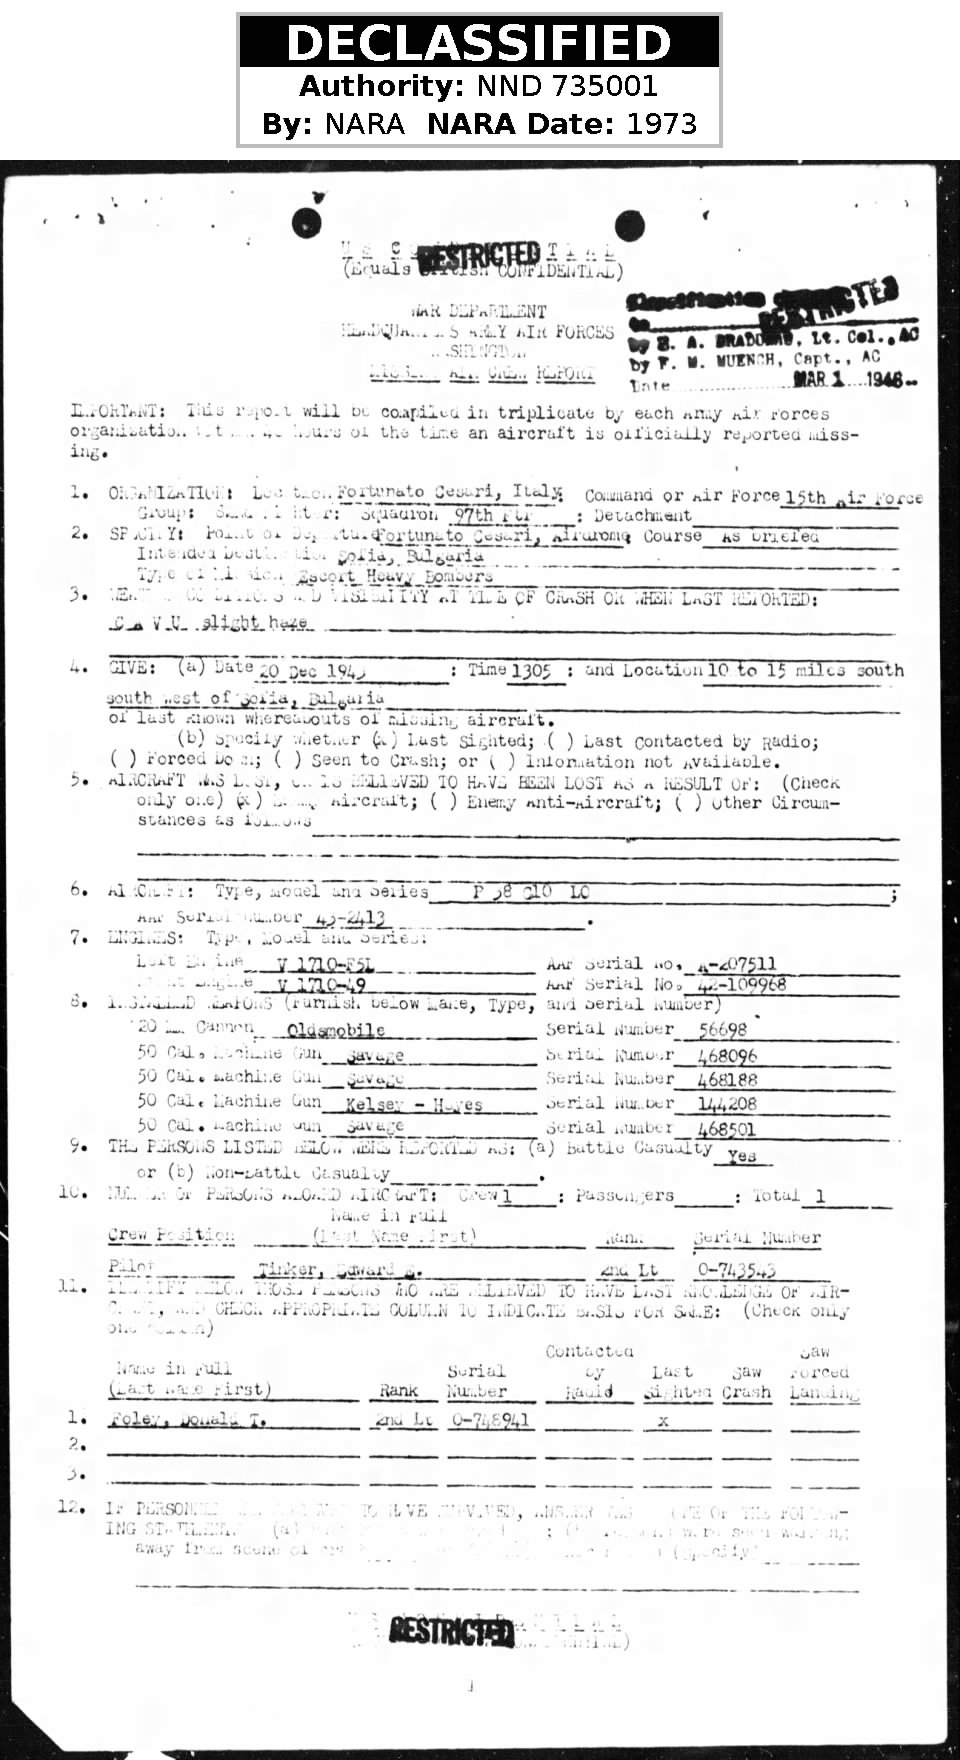 DECLASSIFIED
Authority: NND 735001
By: NARA NARA Date: 1973
RESTRICTED
(Equals British CONFIDENTIAL)
WAR DEPARTMENT
HEADQUARTERS ARMY AIR FORCES
WASHINGTON
MISSING AIR CREW REPORT
RESTRICTED
by E. A. BRADUNAS, Lt. Col., AC
by F. M. MUENCH, Capt., AC
Date MAR 1 1946
IMPORTANT: This report will be compiled in triplicate by each Army Air Forces
organization within 48 hours of the time an aircraft is officially reported miss-
ing.
1. ORGANIZATION: Location Fortunato Cesari, Italy; Command or Air Force 15th Air Force
Group: 82nd Fighter: Squadron 97th Ftr : Detachment
2. SPECIFY: Point of Departure Fortunato Cesari, Airdrome Course As briefed
Intended Destination Sofia, Bulgaria
Type of Mission Escort Heavy Bombers
3. WEATHER CONDITIONS AND VISIBILITY AT TIME OF CRASH OR WHEN LAST REPORTED:
C A V U slight haze
4. GIVE: (a) Date 20 Dec 1943 : Time 1305 : and Location 10 to 15 miles south
south west of Sofia, Bulgaria
of last known whereabouts of missing aircraft.
(b) Specify whether (x) Last Sighted; ( ) Last Contacted by Radio;
( ) Forced Down; ( ) Seen to Crash; or ( ) Information not Available.
5. AIRCRAFT WAS LOST, OR IS BELIEVED TO HAVE BEEN LOST AS A RESULT OF: (Check
only one) (x) Enemy Aircraft; ( ) Enemy Anti-Aircraft; ( ) Other Circum-
stances as follows
6. AIRCRAFT: Type, Model and Series P 38 G10 LO ;
AAF Serial Number 43-2413 .
7. ENGINES: Type, Model and Series:
Left Engine V 1710-F5L AAF Serial No. A-207511
Right Engine V 1710-49 AAF Serial No. 42-109968
8. INSTALLED WEAPONS (Furnish below Make, Type, and Serial Number)
20 MM. Cannon Oldsmobile Serial Number 56698
50 Cal. Machine Gun Savage Serial Number 468096
50 Cal. Machine Gun Savage Serial Number 468188
50 Cal. Machine Gun Kelsey - Hayes Serial Number 144208
50 Cal. Machine Gun Savage Serial Number 468501
9. THE PERSONS LISTED BELOW WERE REPORTED AS: (a) Battle Casualty Yes
or (b) Non-Battle Casualty .
10. NUMBER OF PERSONS ABOARD AIRCRAFT: Crew 1 : Passengers : Total 1
Name in Full
Crew Position (Last Name First) Rank Serial Number
Pilot Tinker, Edward E. 2nd Lt O-743543
11. IDENTIFY BELOW THOSE PERSONS WHO ARE BELIEVED TO HAVE LAST KNOWLEDGE OF AIR-
CRAFT, AND CHECK APPROPRIATE COLUMN TO INDICATE BASIS FOR SAME: (Check only
one column)
Contacted Saw
Name in Full Serial by Last Saw Forced
(Last Name First) Rank Number Radio Sighted Crash Landing
1. Foley, Donald T. 2nd Lt O-748941 x
2.
3.
12. IF PERSONNEL TO HAVE SURVIVED, ANSWER YES ONE OF THE FOLLOW-
ING STATEMENTS: (a) were seen walking
away from scene of crash (specify)
RESTRICTED
1